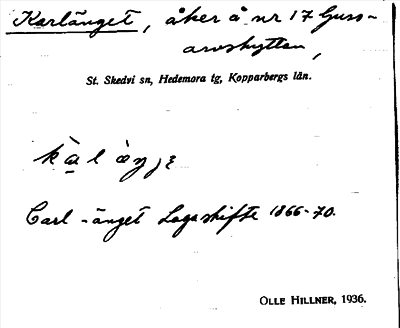 Karlänget, åker å nr 17 Guss-
arvshyttan,
St. Skedvi sn, Hedemora tg, Kopparbergs län.
Carl-änget Laga skifte 1866-70.
OLLE HILLNER, 1936.